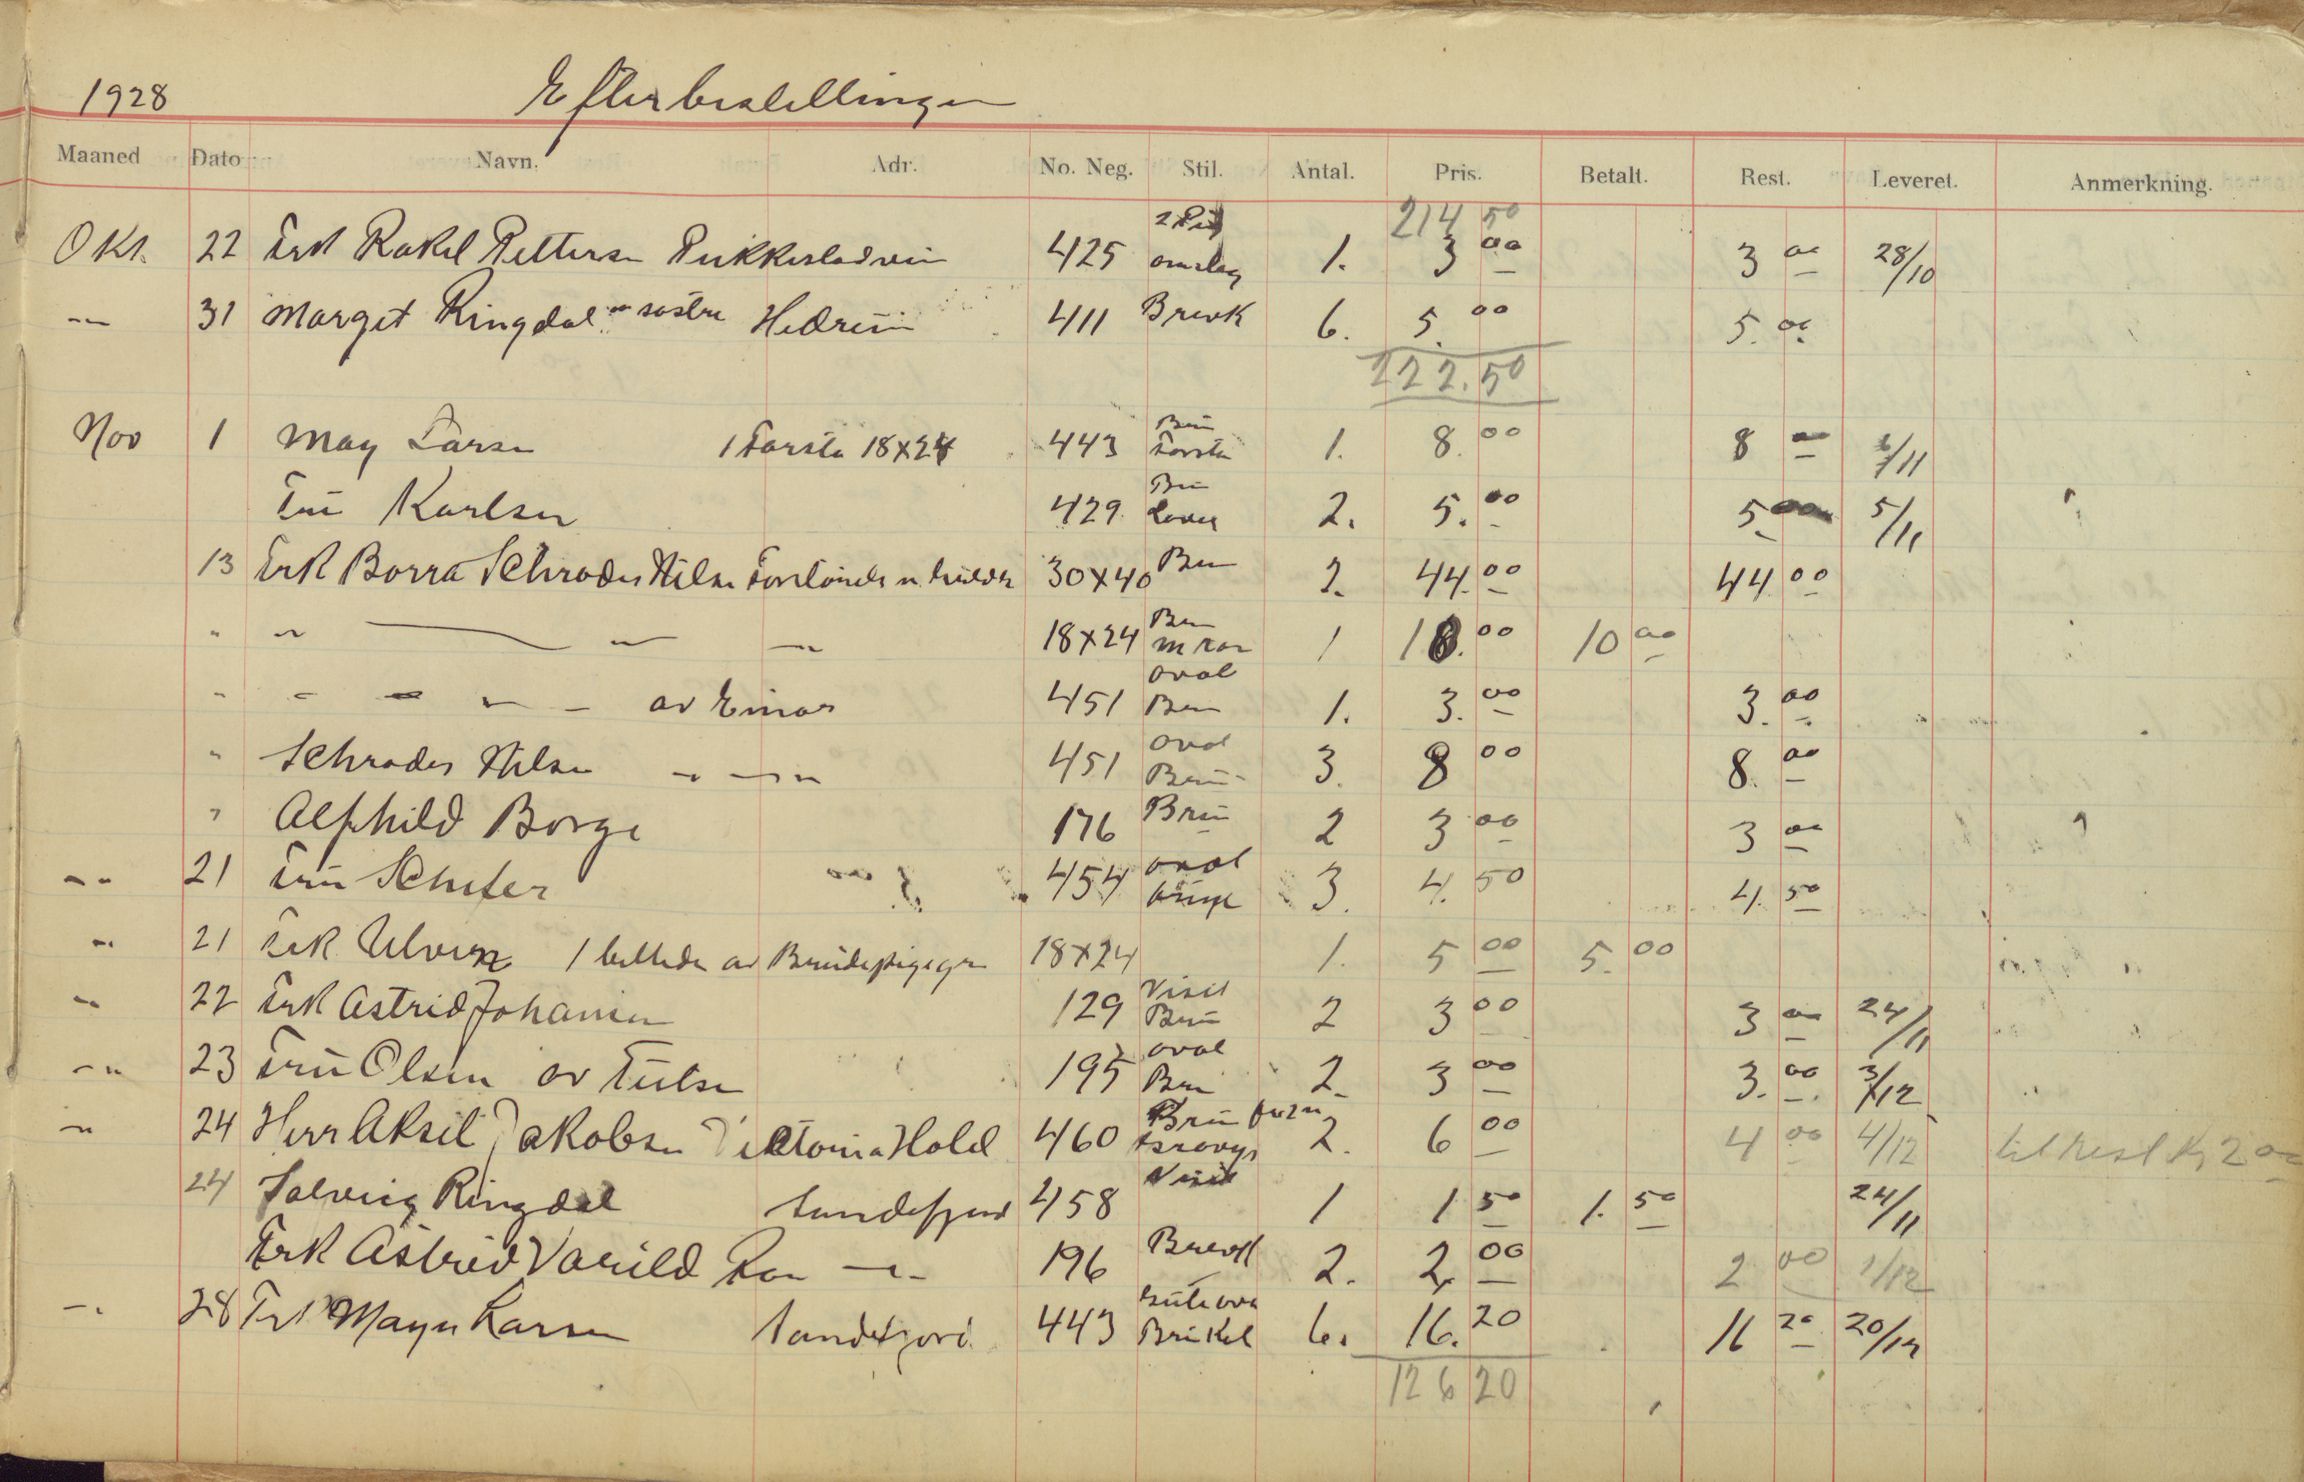 1928 Efterbestellinger
Maaned Dato Navn. Adr. No. Neg. Stil. Antal. Pris. Betalt. Rest. Leveret. Anmerkning.
214 50
Okt. 22 Frk Rakel Pettersen 425 omslag 1. 3 00 3 00 28/10
31 Margit Ringdal m søstre Hedrum 411 Brevk 6. 5. 00 5. 00
222.50
Nov 1 May Larsen 1 Førstø 18x24 443 Brun Førstø 1. 8. 00 8 00 /11
Fru Karlsen 429 Brun 2. 5. 00 5. 00 5/11
13 Frk Borra Schrøder Nilsen 30x40 Brun 2. 44. 00 44 00
" " 18x24 Brun m ram 1 18. 00 10 00
" av Einar 451 oval Brun 1. 3. 00 3. 00
" Schrøder Nilsen 451 oval Brun 3. 8 00 8. 00
" Alfhild Borge 176 Brun 2 3 00 3 00
21 Fru Schøler 454 oval 3. 4. 50 4. 50
21 Frk Ulven 1 billede av Brudepigegr 18x24 1. 5 00 5. 00
22 Frk Astrid Johansen 129 Visit Brun 2 3 00 3 00 24/11
23 Fru Olsen av 195 oval Brun 2. 3 00 3. 00 3/12
24 Herr Aksel Jakobsen Viktoria Hotel 460 Brun 2. 6 00 4 00 4/12 til rest Kr 2 00
24 Solveig Ringdal Sandefjord 458 Visit 1 1 50 1. 50 24/11
Frk Astrid Varild Ra 196 Brevk 2. 2. 00 2 00 1/12
28 Frk Mayn Larsen Sandefjord. 443 6. 16. 20 16 20 20/12
126 20